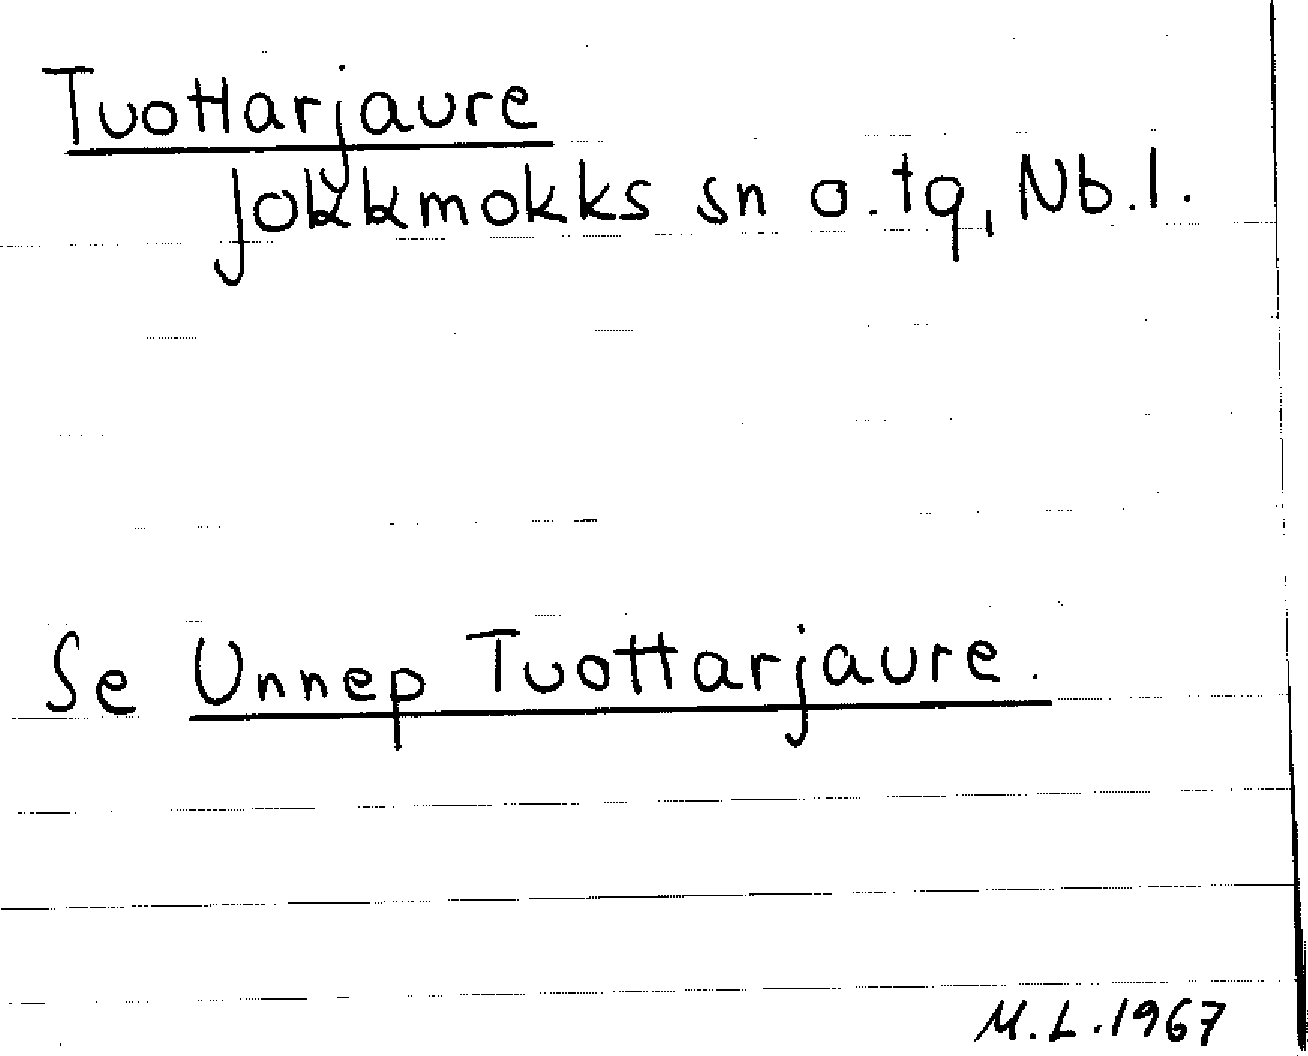 Tuottarjaure
Jokkmokks sn o. tg, Nb.l.
Se Unnep Tuottarjaure.
M.L.1967